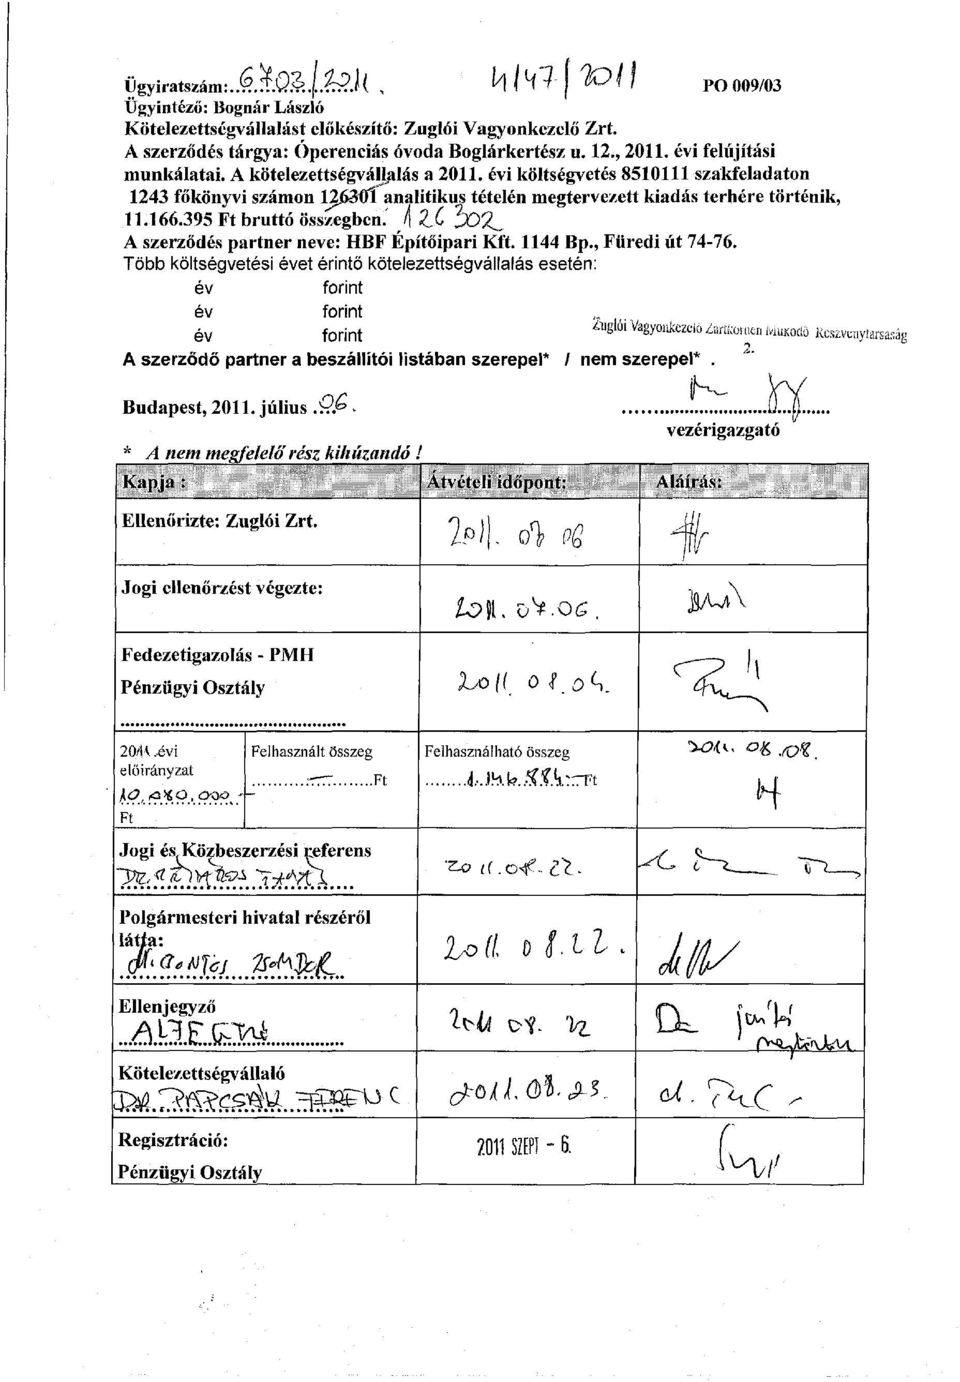 Ügyiratszám: 6703/2011, 4/47/2011 PO 009/03
Ügyintéző: Bognár László
Kötelezettségvállalást előkészítő: Zuglói Vagyonkezelő Zrt.
A szerződés tárgya: Óperenciás óvoda Boglárkertész u. 12., 2011. évi felújítási
munkálatai. A kötelezettségvállalás a 2011. évi költségvetés 8510111 szakfeladaton
1243 főkönyvi számon 126301 analitikus tételén megtervezett kiadás terhére történik,
11.166.395 Ft bruttó összegben. 126302
A szerződés partner neve: HBF Építőipari Kft. 1144 Bp., Füredi út 74-76.
Több költségvetési évet érintő kötelezettségvállalás esetén:
év forint
év forint
év forint
Zuglói Vagyonkezelő Zártkörűen Működő Részvénytársaság
2.
A szerződő partner a beszállítói listában szerepel* / nem szerepel* .
Budapest, 2011. július 06.
vezérigazgató
* A nem megfelelő rész kihúzandó !
Kapja : Átvételi időpont: Aláírás:
Ellenőrizte: Zuglói Zrt. 2011. 07 06
Jogi ellenőrzést végezte: 2011. 07.06.
Fedezetigazolás - PMH
Pénzügyi Osztály 2011. 08.04.
2011.évi Felhasznált összeg Felhasználható összeg 2011. 08.08.
előirányzat
10.080.000.- ..........-..........Ft ........1.146.884.-Ft
Ft
Jogi és Közbeszerzési referens
2011.08.22.
Polgármesteri hivatal részéről
látja: 2011. 08.22.
Ellenjegyző
2011 08. 22
Kötelezettségvállaló
DR. PAPCSÁK FERENC 2011.08.23.
Regisztráció: 2011 SZEPT - 6.
Pénzügyi Osztály